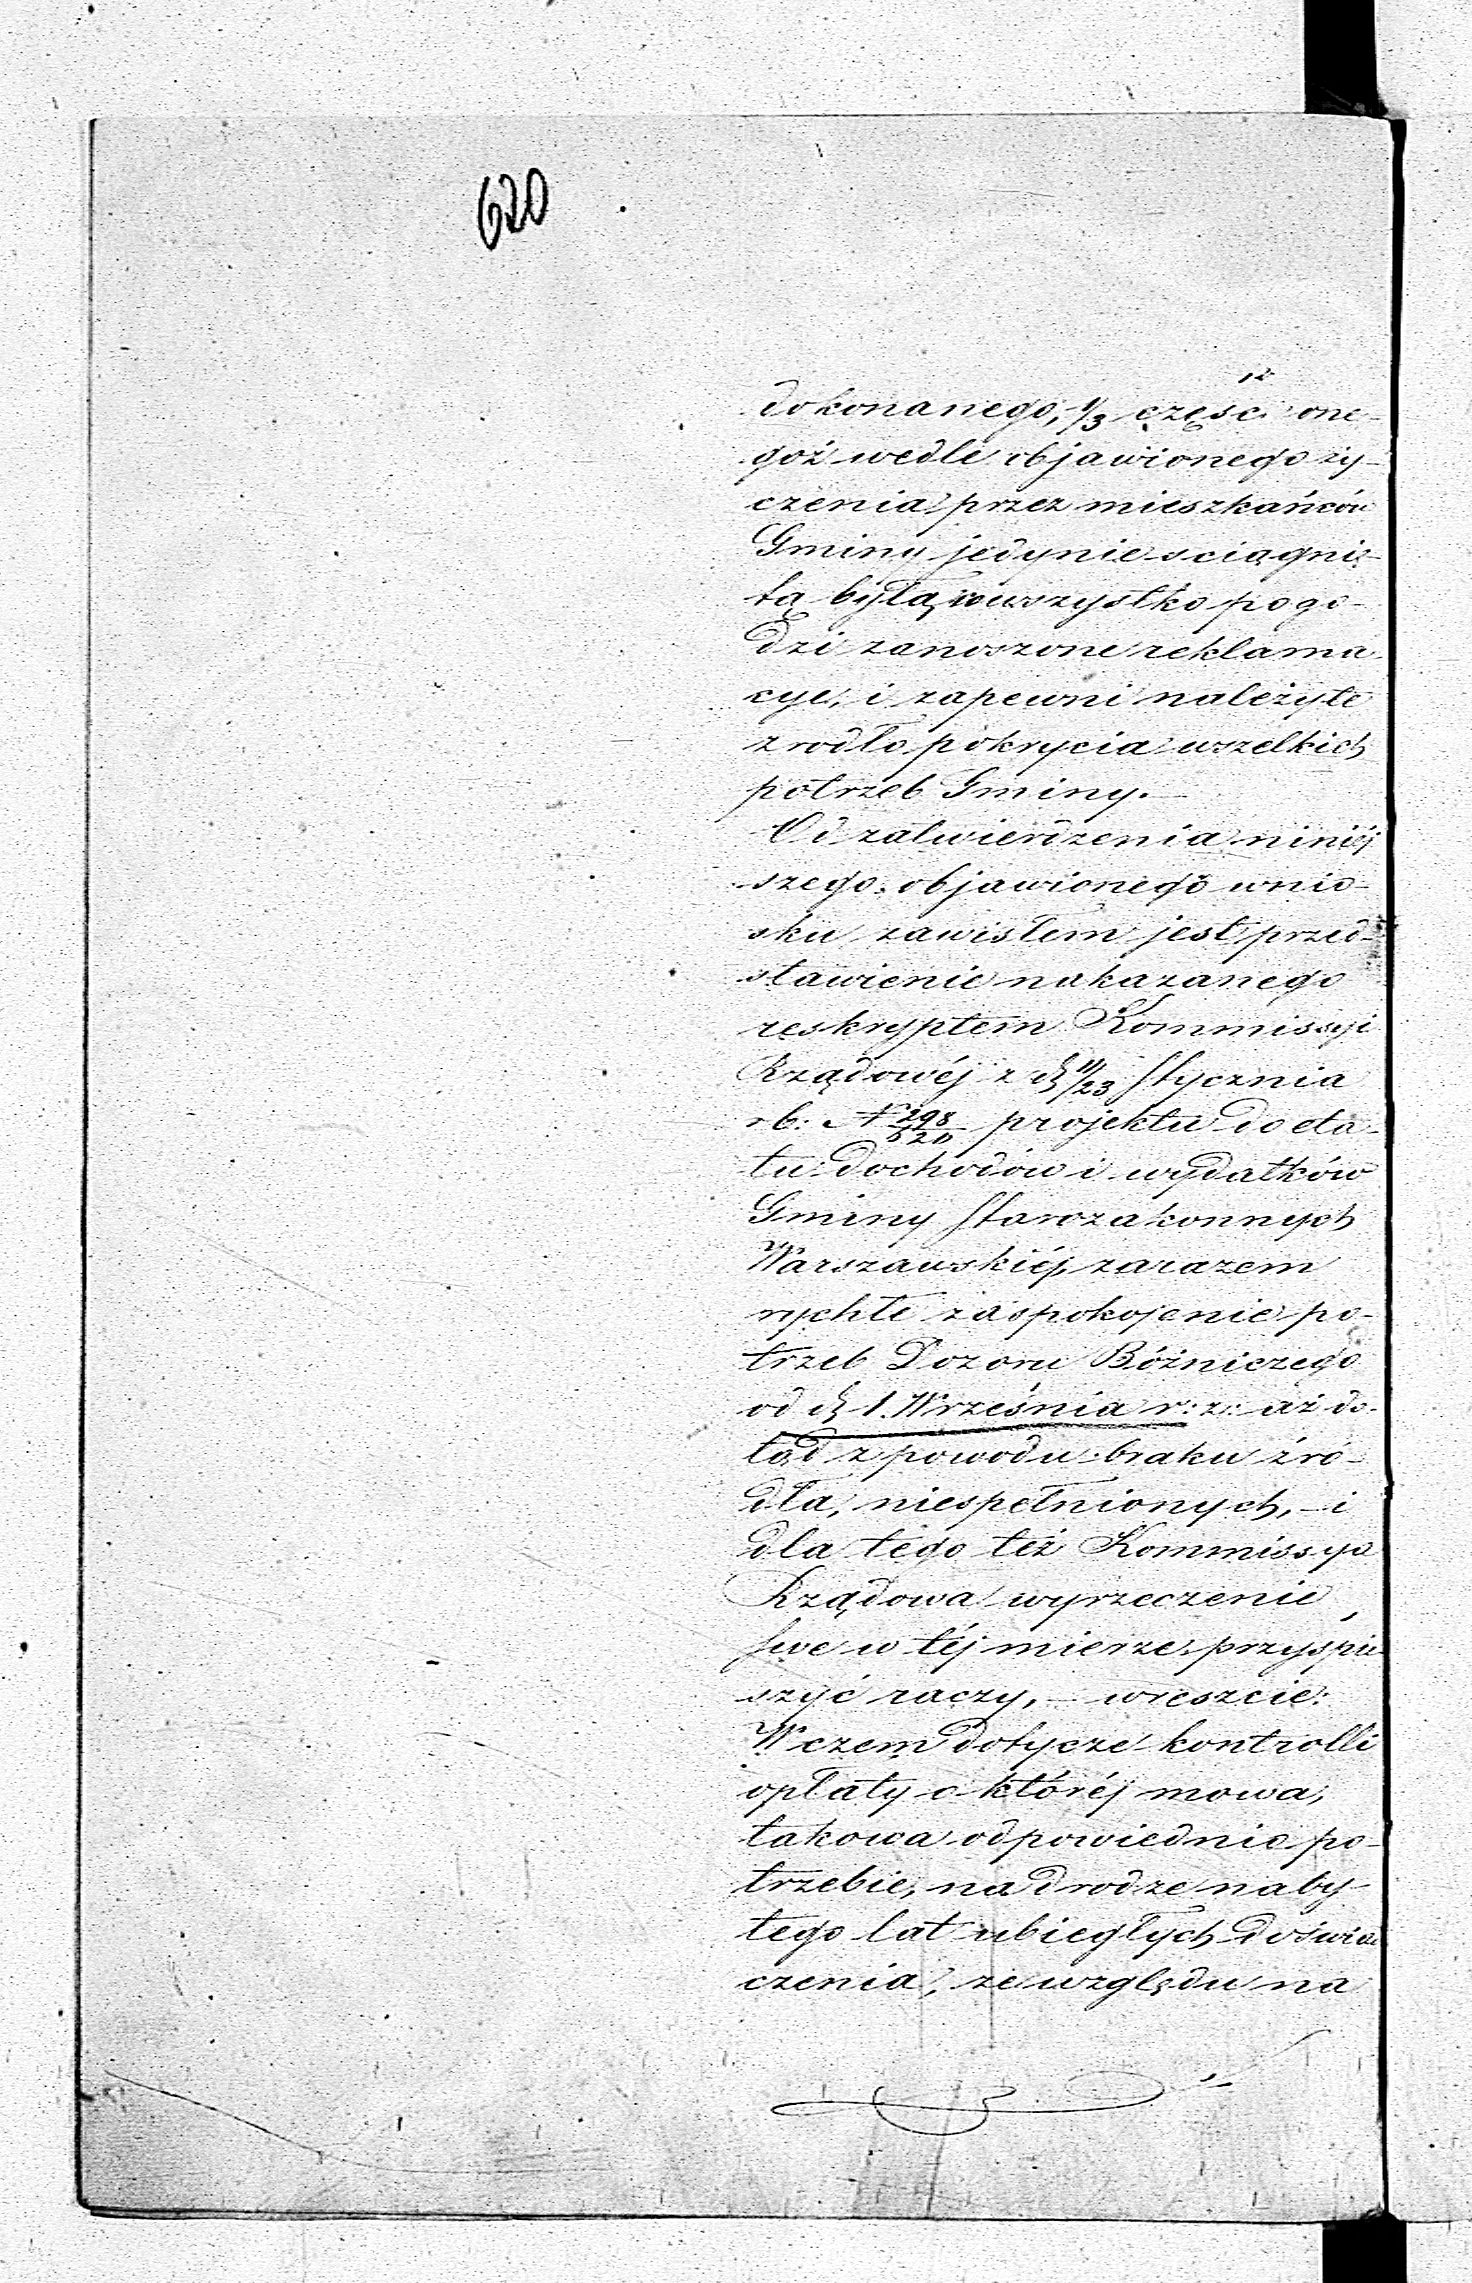 620
12
dokonanego, 1/3 częsci one-
goż wedle objawionego ży-
czenia przez mieszkańców
Gminy jedynie sciągnię-
tą byłą, wszystko pogo-
dzi zanoszone reklama-
cye, i zapewni należyte
zrodło pokrycia wszelkich
potrzeb Gminy.—
Od zatwierdzenia niniéj
szego objawionego wnio-
sku zawisłem jest przed-
stawienie nakazanego
reskryptem Kommissyi
Rządowéj z d. 11/23 Stycznia
r b: N 298/620 projektu do eta-
tu dochodów i wydatków
Gminy Starozakonnych
Warszawskiéj, zarazem
rychłe zaspokojenie po-
trzeb Dozoru Bóżniczego
od d. 1. Września r: z: aż do-
tąd z powodu braku źró-
dła, niespełnionych, - i
dla tego też Kommissya
Rządowa wyrzeczenie
swe w téj mierze przyspie
szyć raczy, — wreszcie:
W czem dotycze kontrolli
opłaty o któréj mowa,
takowa odpowiednio po-
trzebie, na drodze naby-
tego lat ubiegłych doświad
czenia, ze względu na